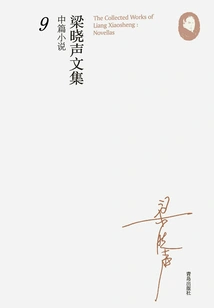 The Collected Works of
Liang Xiaosheng :
Novellas
梁晓声文集
中篇小说
9
梁晓声
青岛出版社